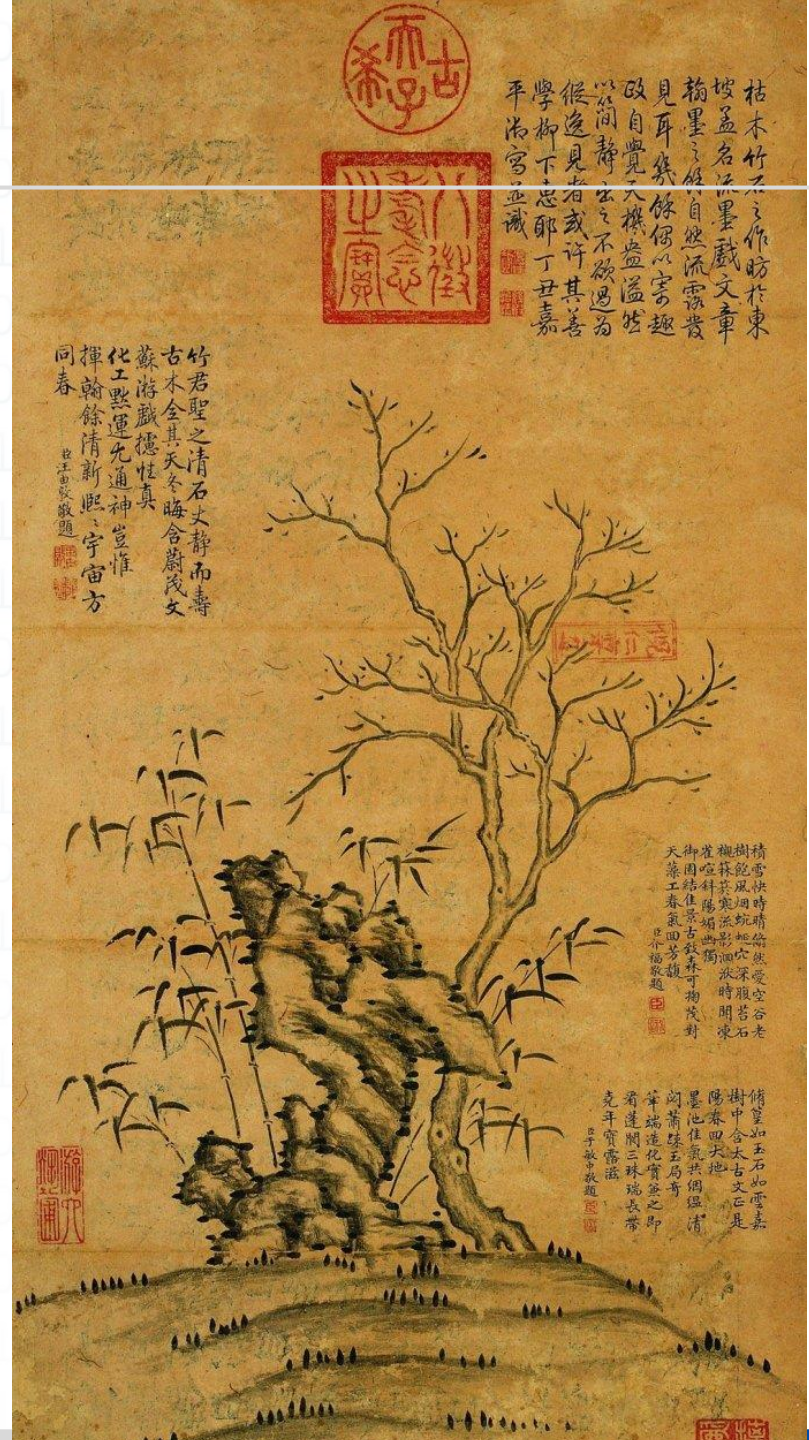 古希天子
八徵耄念之寶
枯木竹石之作昉於東
坡盖名流墨戲文章
翰墨之餘自然流露發
見耳幾餘偶以寄趣
政自覺天機盎溢然
以簡靜出之不欲過為
縱逸見者或許其善
學柳下惠耶丁丑嘉
平淌寫並識
竹君聖之清石丈靜而壽
古木全其天冬晦含蔚茂文
蘇游戲攄性真
化工默運尤通神豈惟
揮翰餘清新熙〻宇宙方
同春
臣汪由敦敬題
積雪快時晴翛然愛空谷老
樹飽風烟蜿蜒穴深腹苔石
襯篠菸寒流影洄洑時聞凍
雀喧斜陽媚幽獨
御圖結佳景古致森可掬茂對
天藻工春氣回芳馥
臣介福敬題
脩篁如玉石如雲嘉
樹中含太古文正是
陽春回大地
墨池佳氣共絪縕清
閟蕭疎玉局奇
筆端造化寶兼之即
看蓬閬三珠瑞長帶
堯年寶露滋
臣于敏中敬題